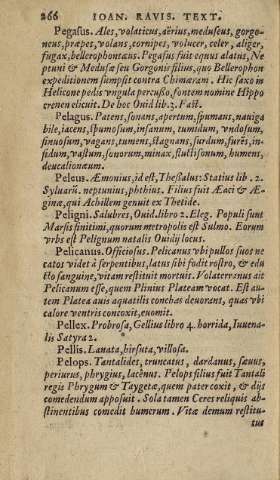 266 IOAN. RAVIS. TEXT.
Pegasus. Ales, volaticus, aërius, meduseus, gorgo-
neus, præpes, volans, cornipes, volucer, celer, aliger,
fugax, bellerophontæus. Pegasus fuit equus alatus, Ne
ptuni & Medusæ seu Gorgonis filius, quo Bellerophon
expeditionem sumpsit contra Chimæram. Hic saxo in
Helicone pedis vngula percusso, fontem nomine Hippo
crenen elicuit. De hoc Ouid lib. 3. Fast.
Pelagus. Patens, sonans, apertum, spumans, nauiga
bile, iacens, spumosum, insanum, tumidum, vndosum,
sinuosum, vagans, tumens, stagnans, surdum, furẽs, in-
fidum, vastum, sonorum, minax, fluctisonum, humens,
deucalionæum.
Peleus. Æmonius, id est, Thessalus: Statius lib. 2.
Syluarũ. neptunius, phthius. Filius fuit Æaci & Æ-
ginæ, qui Achillem genuit ex Thetide.
Peligni. Salubres, Ouid. libro 2. Eleg. Populi sunt
Marsis finitimi, quorum metropolis est Sulmo. Eorum
vrbs est Pelignum natalis Ouidij locus.
Pelicanus. Officiosus. Pelicanus vbi pullos suos ne
catos videt à serpentibus, latus sibi fodit rostro, & edu
cto sanguine, vitam restituit mortuis. Volaterranus ait
Pelicanum esse, quem Plinius Plateam vocat. Est au-
tem Platea auis aquatilis conchas deuorans, quas vbi
calore ventris concoxit, euomit.
Pellex. Probrosa, Gellius libro 4. horrida, Iuuena-
lis Satyra 2.
Pellis. Lanata, hirsuta, villosa.
Pelops. Tantalides, truncatus, dardanus, sæuus,
periurus, phrygius, lacẽnus. Pelops filius fuit Tantali
regis Phrygum & Taygetæ, quem pater coxit, & dijs
comedendum apposuit. Sola tamen Ceres reliquis ab-
stinentibus comedit humerum. Vitæ demum restitu-
tus